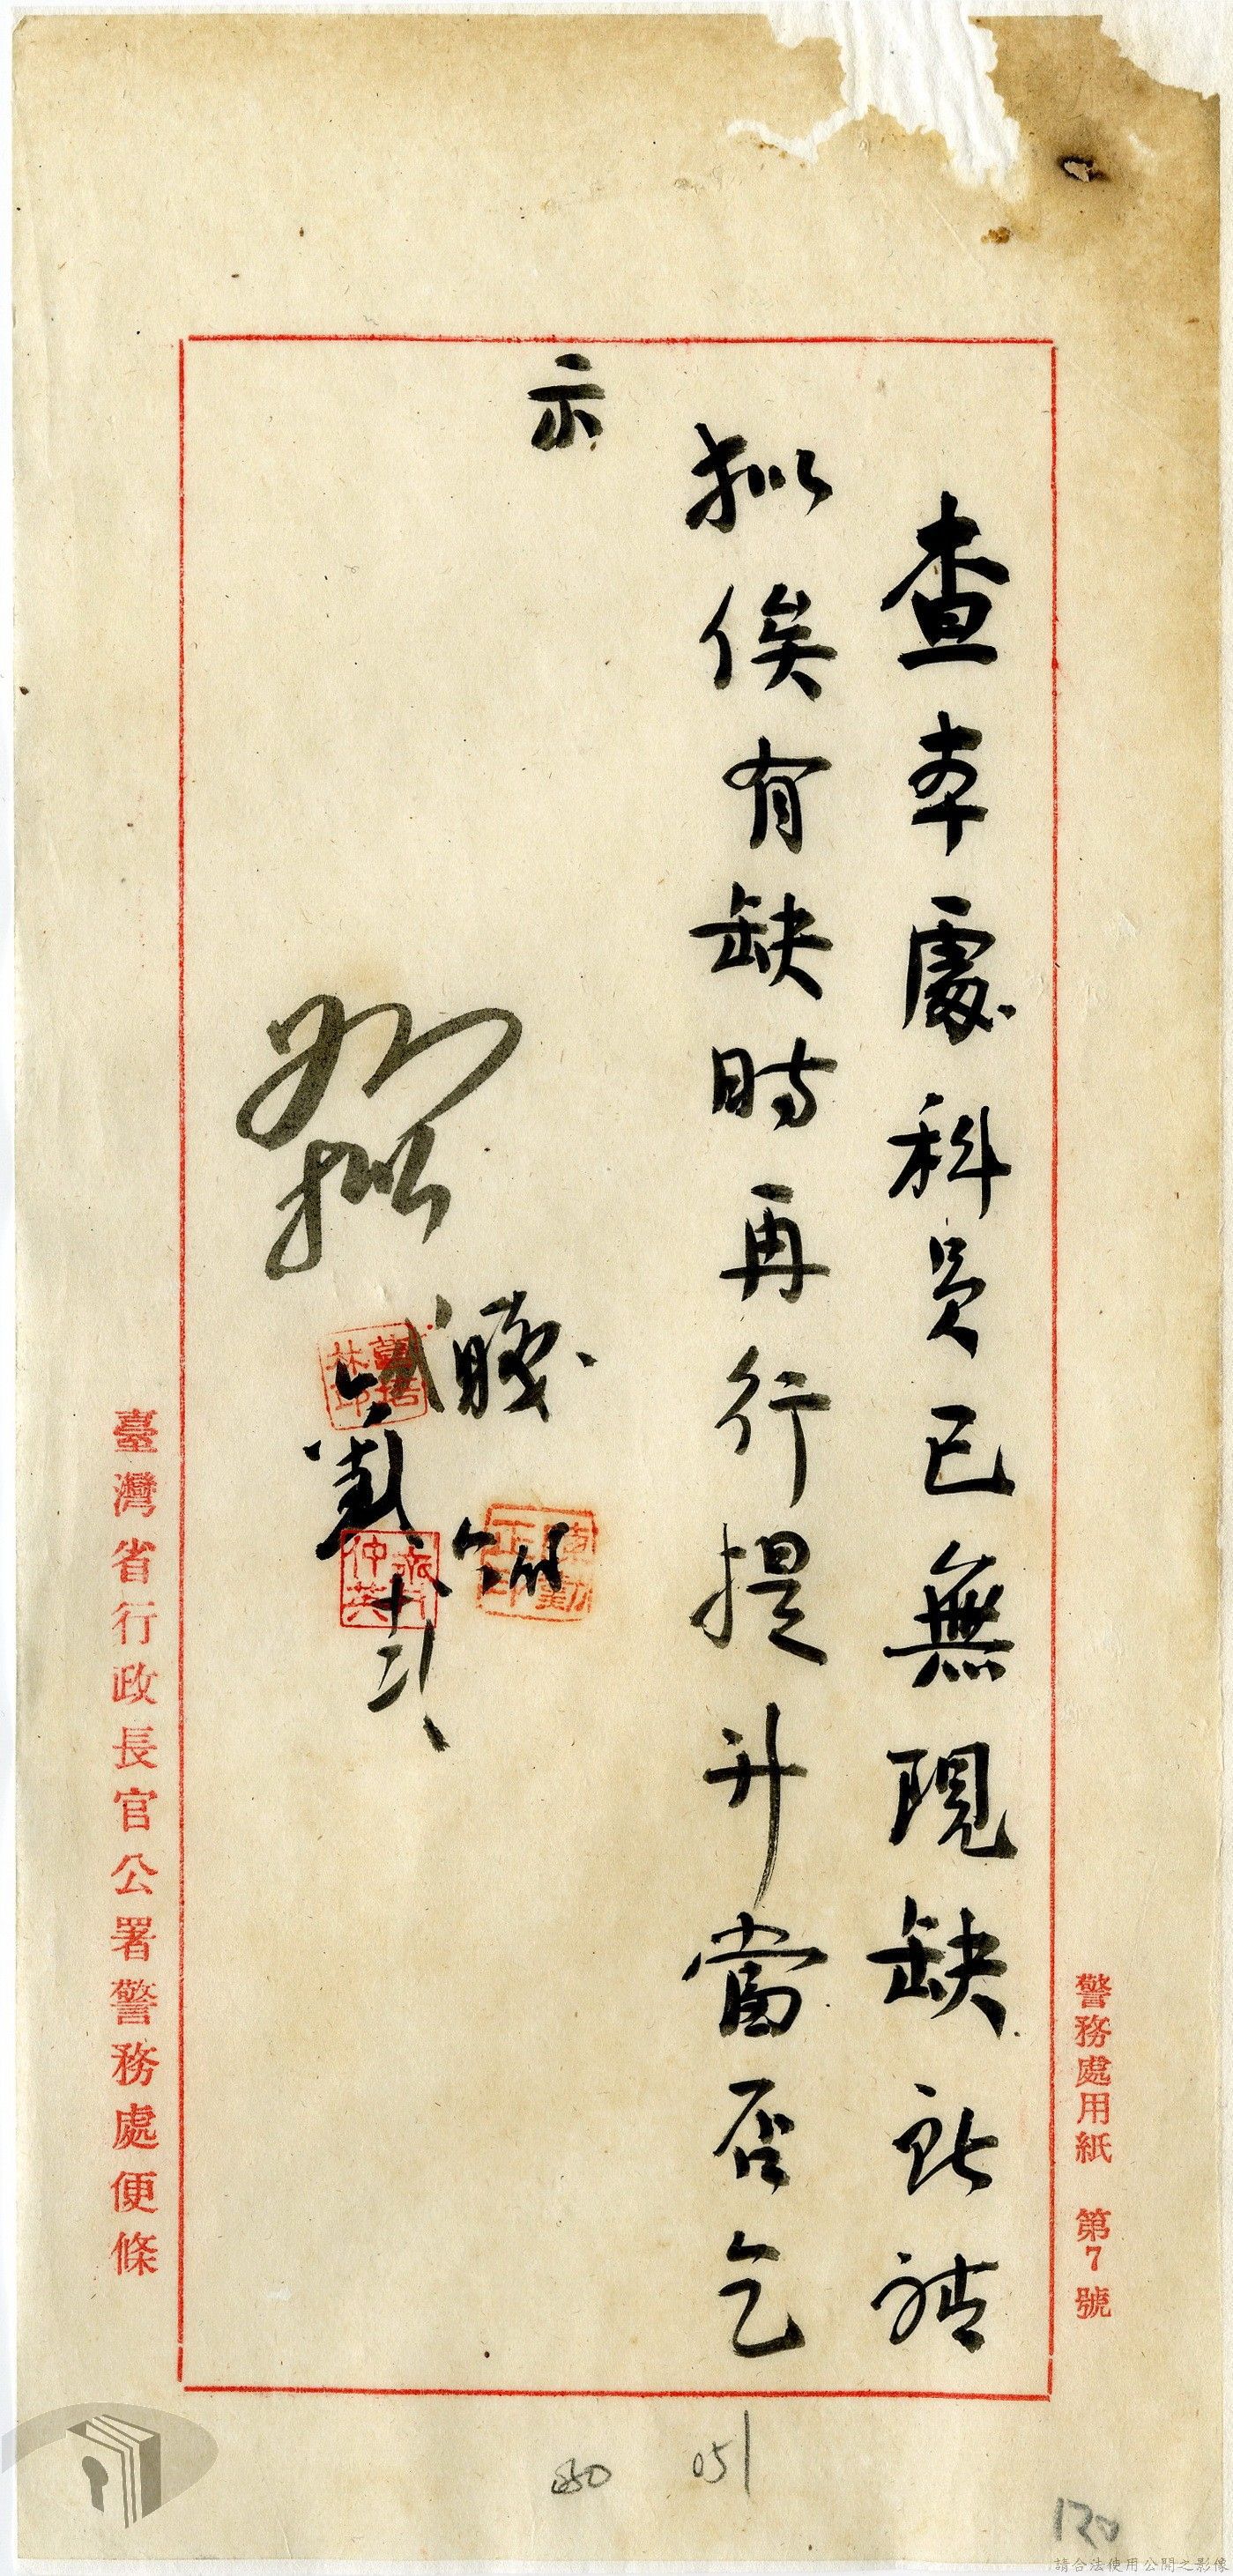 警務處用紙 第7號
查本處科員已無現缺所請
擬俟有缺時再行提升當否乞
示
職
如擬
臺灣省行政長官公署警務處便條
051
120
請合法使用公開之影像